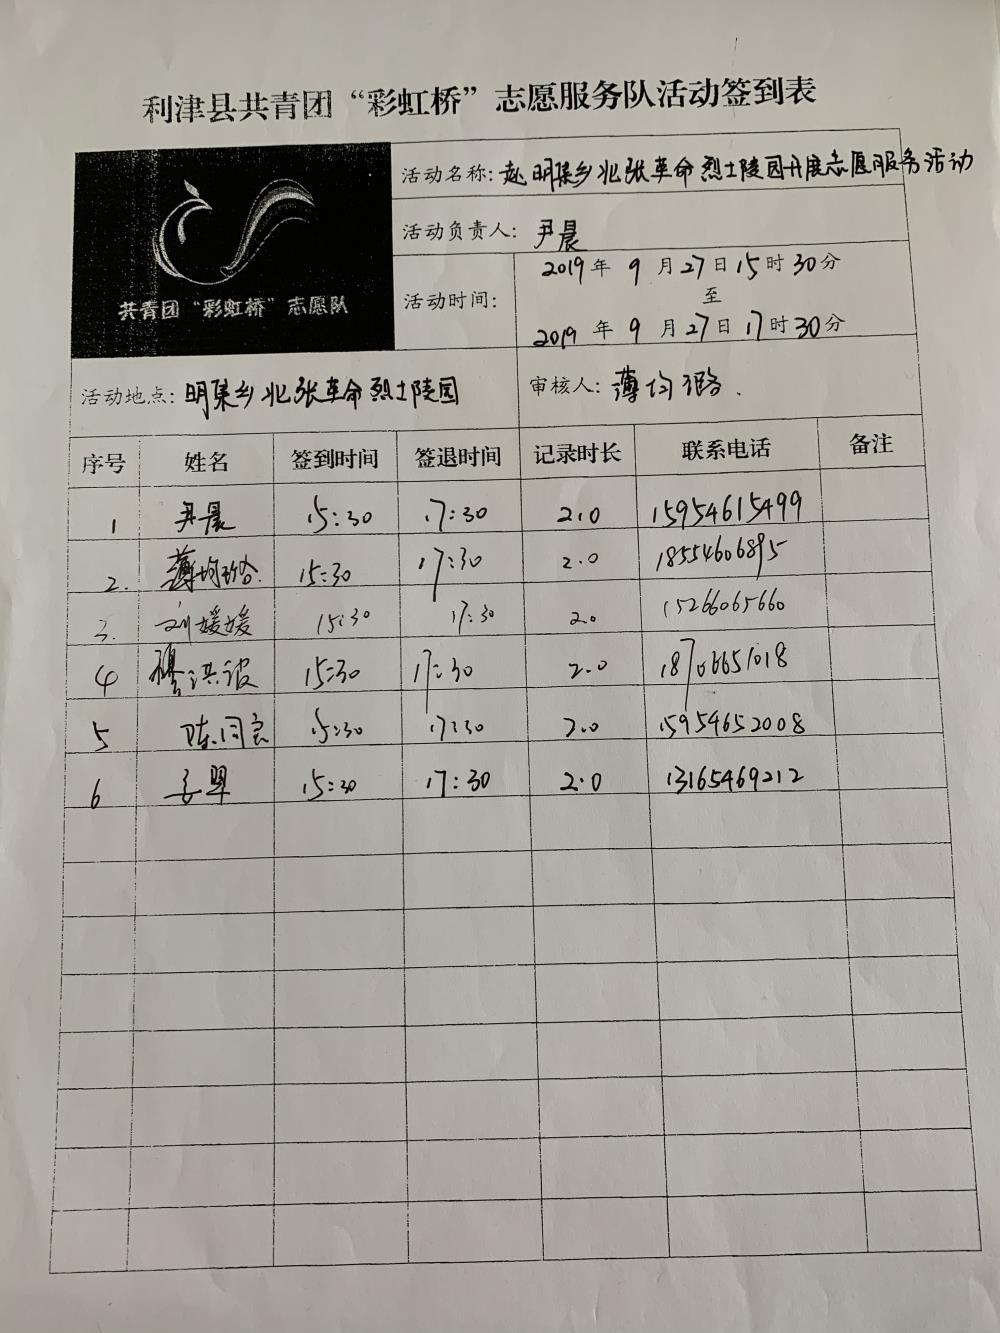 利津县共青团“彩虹桥”志愿服务队活动签到表
共青团“彩虹桥”志愿队
活动名称：赴明集乡北张革命烈士陵园开展志愿服务活动
活动负责人：尹晨
活动时间：
2019年9月27日15时30分
至
2019年9月27日17时30分
活动地点：明集乡北张革命烈士陵园
审核人：薄均
序号 姓名 签到时间 签退时间 记录时长 联系电话 备注
1 尹晨 15:30 17:30 2.0 15954615499
2. 薄均 15:30 17:30 2.0 18554606895
3. 刘媛媛 15:30 17:30 2.0 15266065660
4 洪波 15:30 17:30 2.0 18706651018
5 陈同良 15:30 17:30 2.0 15954652008
6 15:30 17:30 2.0 13165469212